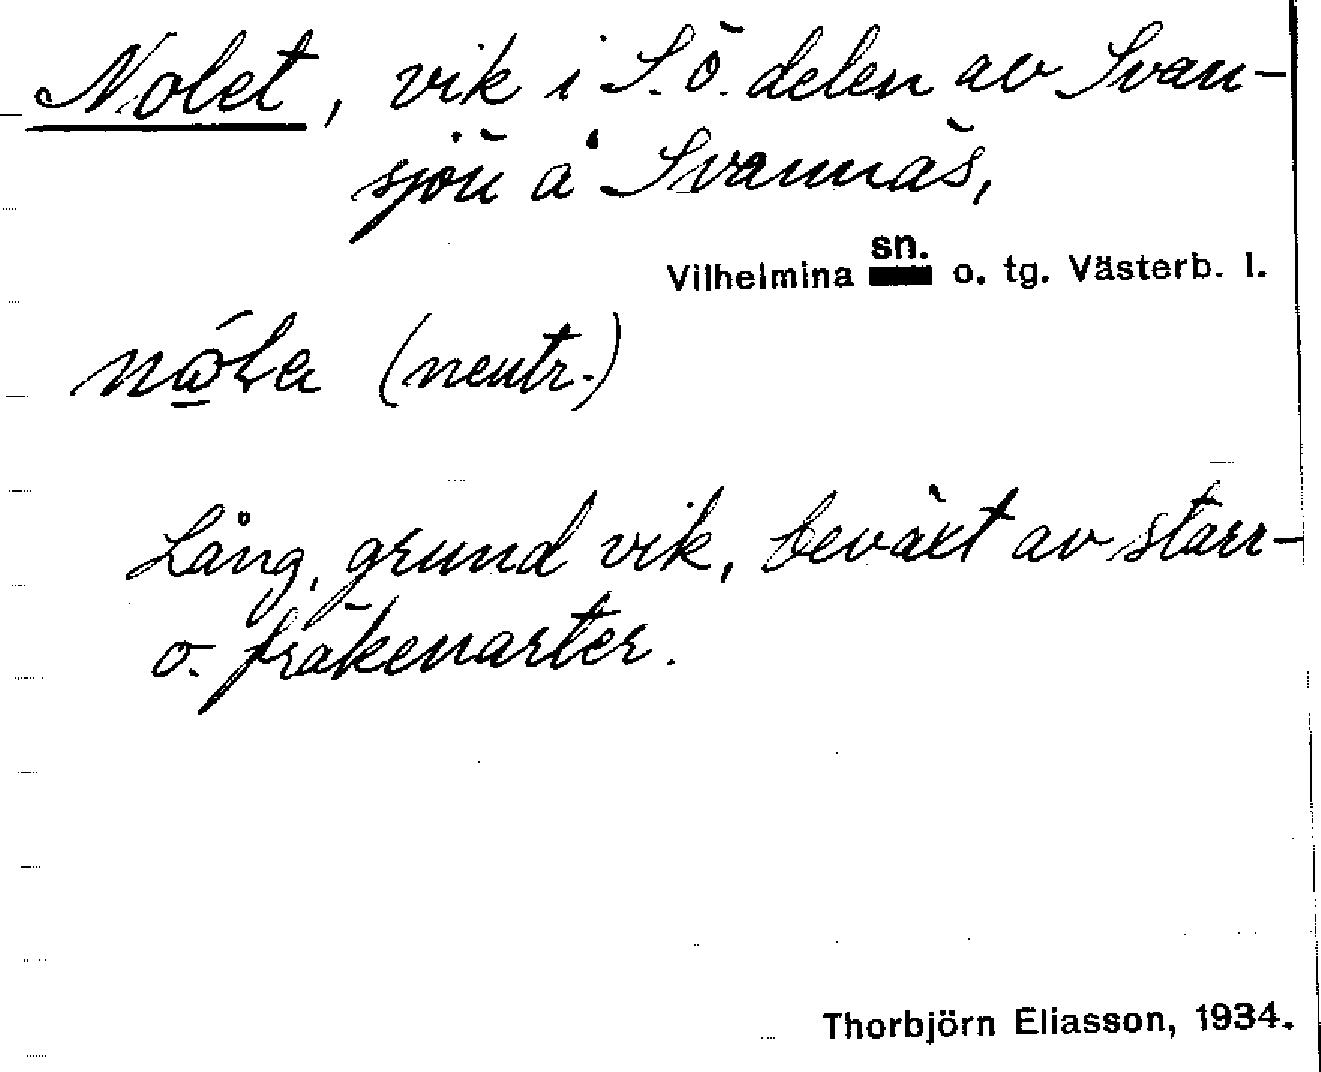 Nolet, vik i S.Ö. delen av Svan-
sjön å Svannäs,
Vilhelmina sn. o. tg. Västerb. l.
(neutr.)
Lång, grund vik, beväxt av starr-
o. fräkenarter.
Thorbjörn Eliasson, 1934.